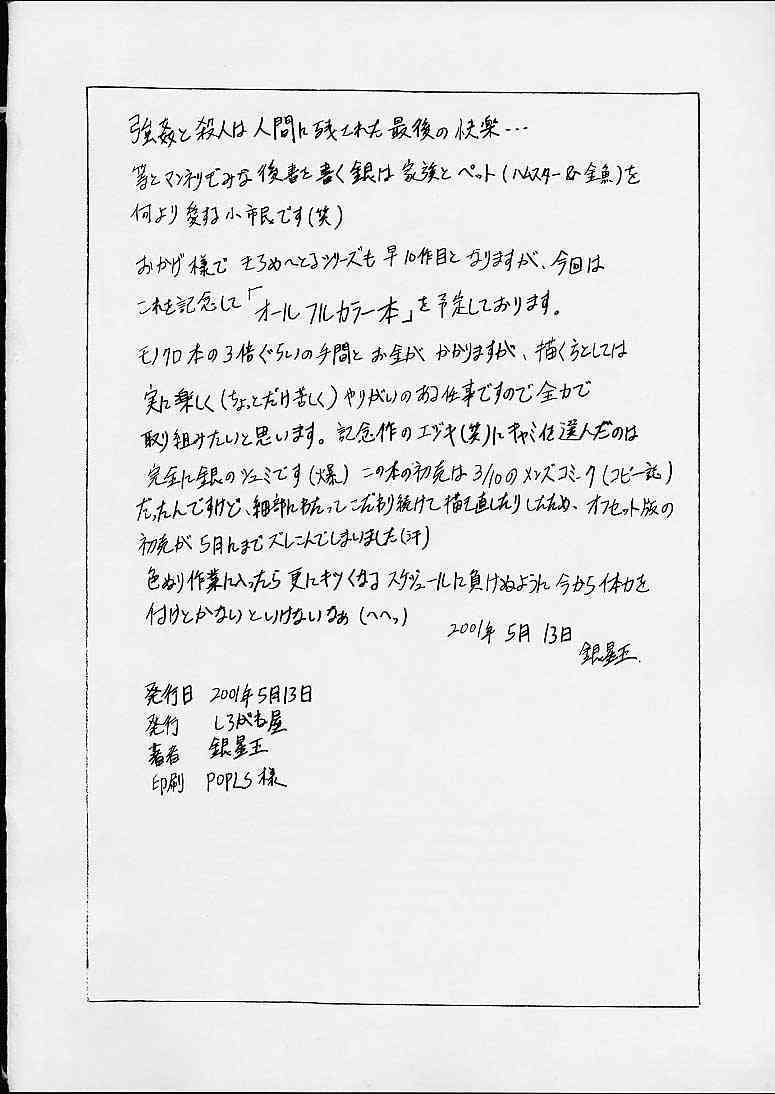 強姦と殺人は人間に残された最後の快楽…
等とマンネリぎみな後書を書く銀は家族とペット(ハムスター&金魚)を
何より愛する小市民です(笑)
おかげ様で シリーズも早10作目となりますが、今回は
これを記念して「オールフルカラー本」を予定しております。
モノクロ本の3倍ぐらいの手間とお金がかかりますが、描く方としては
実に楽しく(ちょっとだけ苦しく)やりがいのある仕事ですので全力で
取り組みたいと思います。記念作のエヅキ(笑)にキャミィを選んだのは
完全に銀のシュミです(爆) この本の初売は3/10のメンズコミーク(コピー誌)
だったんですけど、細部にわたってこだわり続けて描き直したりしたため、オフセット版の
初売が5月にまでズレこんでしまいました(汗)
色ぬり作業に入ったら更にキツくなるスケジュールに負けぬように今から体力を
付けとかないといけないなぁ(へへっ)
2001年5月13日
銀星王
発行日 2001年5月13日
発行 しろがね屋
著者 銀星王
印刷 POPLS様